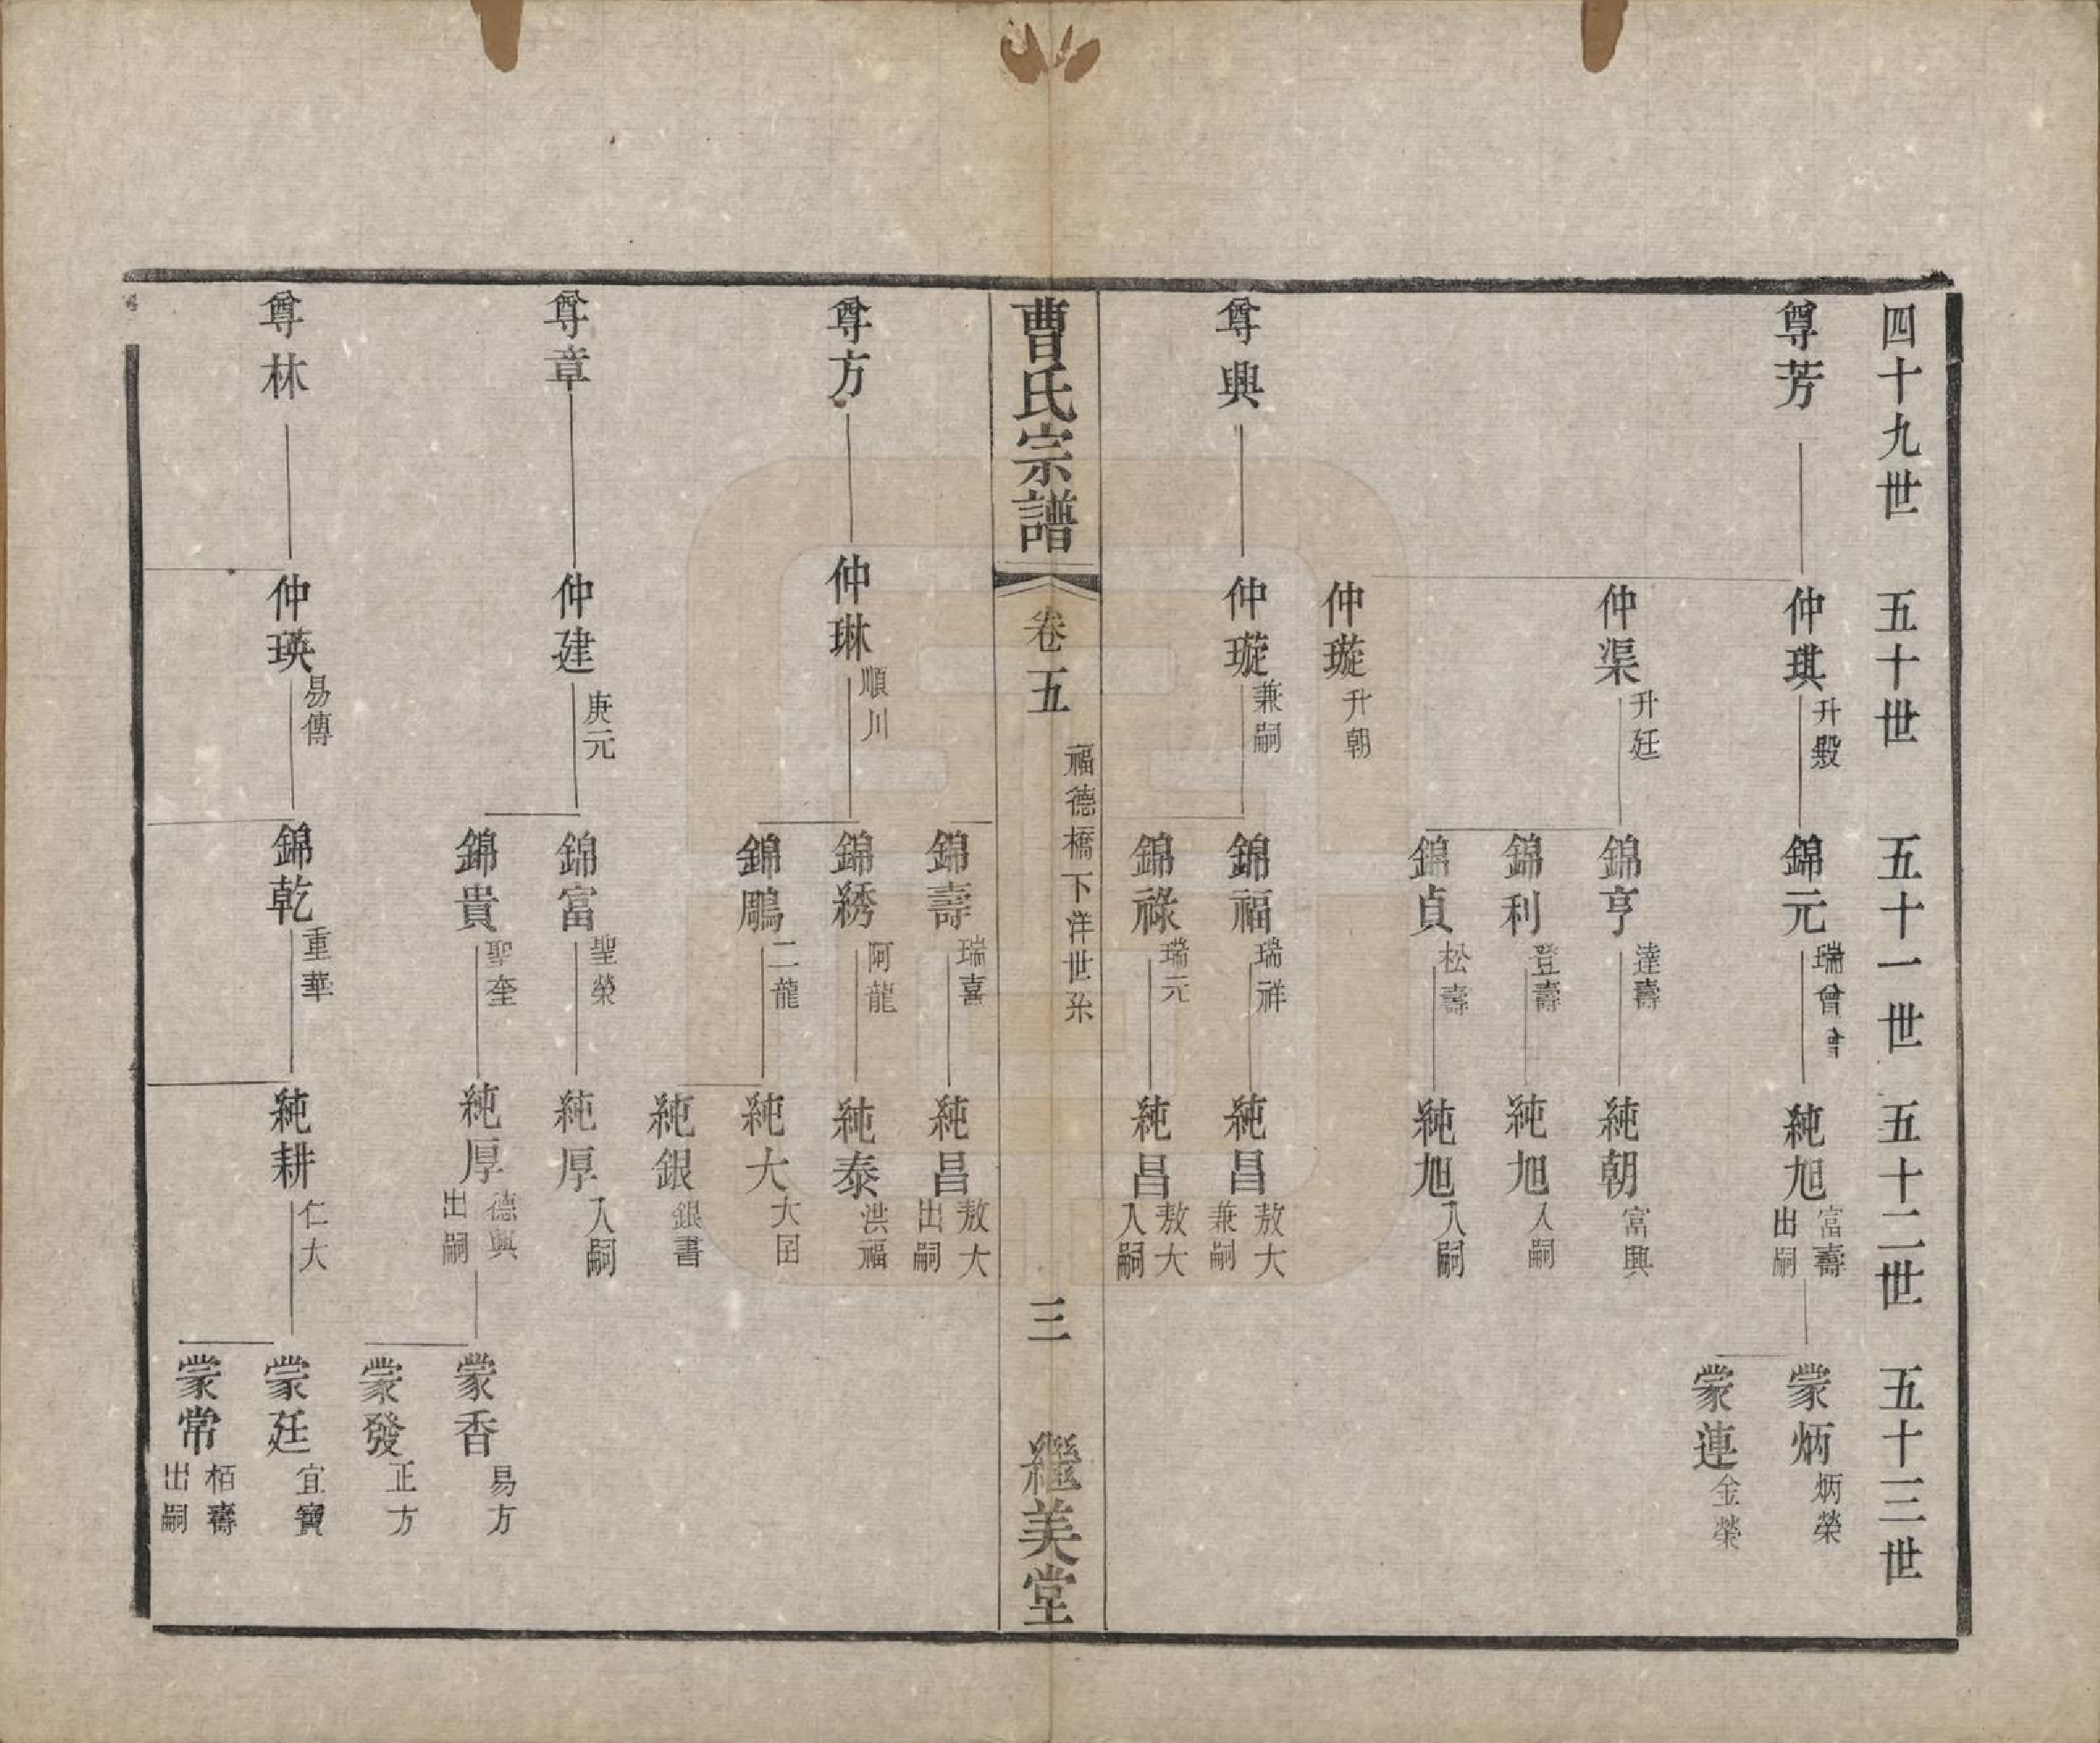 四十九世　五十世　五十一世　五十二世　五十三世
尊芳　仲琪 升殿　錦元 瑞曾　純旭 富壽 出嗣　蒙炳 炳榮
蒙連 金榮
仲渠 升廷　錦亨 達壽　純朝 富興
錦利 登壽　純旭 入嗣
錦貞 松壽　純旭 入嗣
仲璇 升朝
尊興　仲璇 兼嗣　錦福 瑞祥　純昌 敖大 兼嗣
錦祿 瑞元　純昌 敖大 入嗣
曹氏宗譜　卷五　福德橋下洋世系　三　繼美堂
錦壽 瑞喜　純昌 敖大 出嗣
尊方　仲琳 順川　錦綉 阿龍　純泰 洪福
錦鵰 二龍　純大 大囝
純銀 銀書
尊章　仲建 庚元　錦富 聖榮　純厚 入嗣
錦貴 聖奎　純厚 德興 出嗣　蒙香 易方
蒙發 正方
尊林　仲瑛 易傳　錦乾 重華　純耕 仁大　蒙廷 宜寶
蒙常 栢壽 出嗣